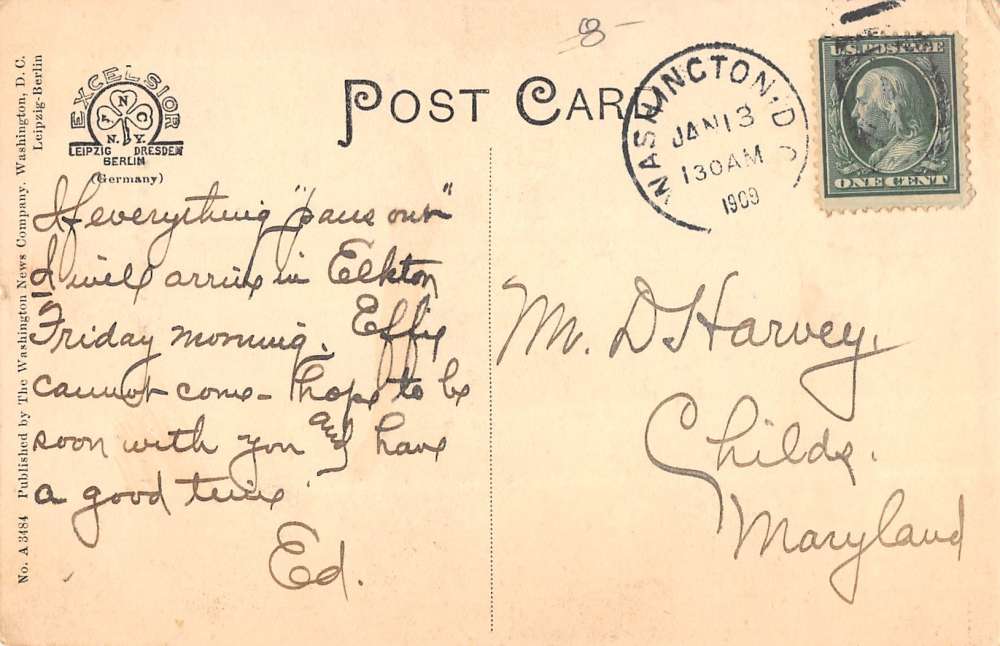 8-
POST CARD
WASHINGTON, D.C.
JAN 13
130 AM
1909
U.S. POSTAGE
ONE CENT
EXCELSIOR
A N C
N.Y.
LEIPZIG DRESDEN
BERLIN
(Germany)
No. A 3484 Published by The Washington News Company. Washington, D. C.
Leipzig-Berlin
If everything "pans out"
I will arrive in Elkton
Friday morning. Effie
cannot come - hope to be
soon with you and have
a good time
Ed.
Mr. D Harvey,
Childs.
Maryland